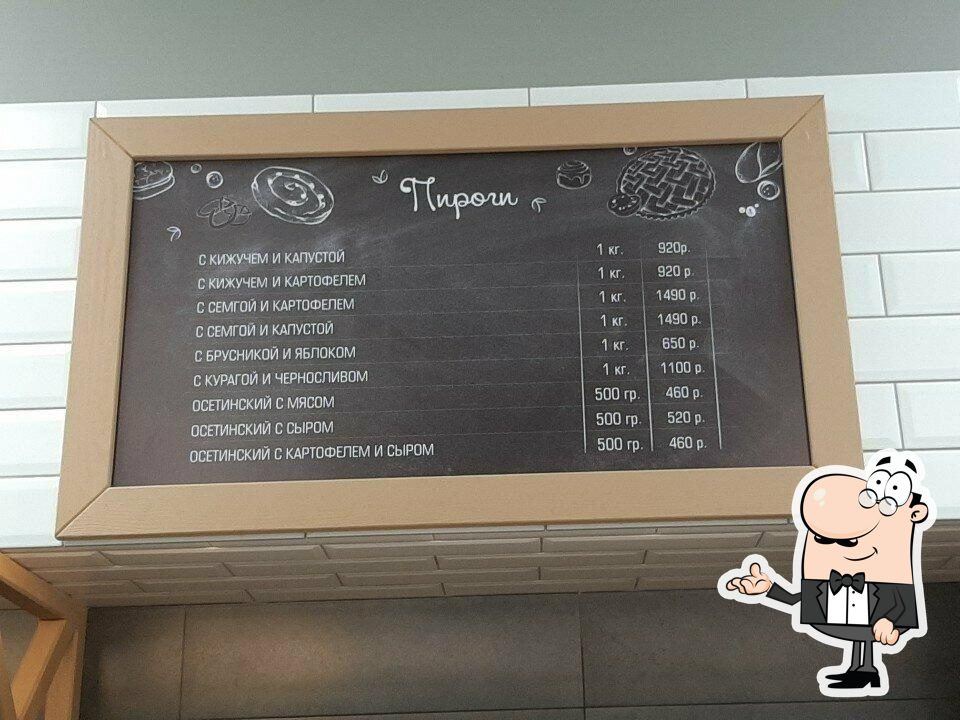 Пироги
С КИЖУЧЕМ И КАПУСТОЙ 1 кг. 920р.
С КИЖУЧЕМ И КАРТОФЕЛЕМ 1 кг. 920 р.
С СЕМГОЙ И КАРТОФЕЛЕМ 1 кг. 1490 р.
С СЕМГОЙ И КАПУСТОЙ 1 кг. 1490 р.
С БРУСНИКОЙ И ЯБЛОКОМ 1 кг. 650 р.
С КУРАГОЙ И ЧЕРНОСЛИВОМ 1 кг. 1100 р.
ОСЕТИНСКИЙ С МЯСОМ 500 гр. 460 р.
ОСЕТИНСКИЙ С СЫРОМ 500 гр. 520 р.
ОСЕТИНСКИЙ С КАРТОФЕЛЕМ И СЫРОМ 500 гр. 460 р.